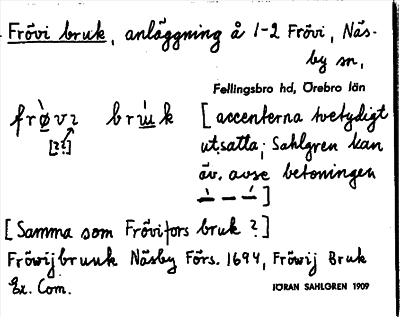 Frövi bruk, anläggning å 1-2 Frövi, Näs-
by sn,
Fellingsbro hd, Örebro län
frøvı bruk [accenterna tvetydigt
[??] utsatta; Sahlgren kan
äv. avse betoningen
– – –]
[Samma som Frövifors bruk?]
Fröwijbruuk Näsby Förs. 1694, Fröwij Bruk
Ex. Com.
JÖRAN SAHLGREN 1909